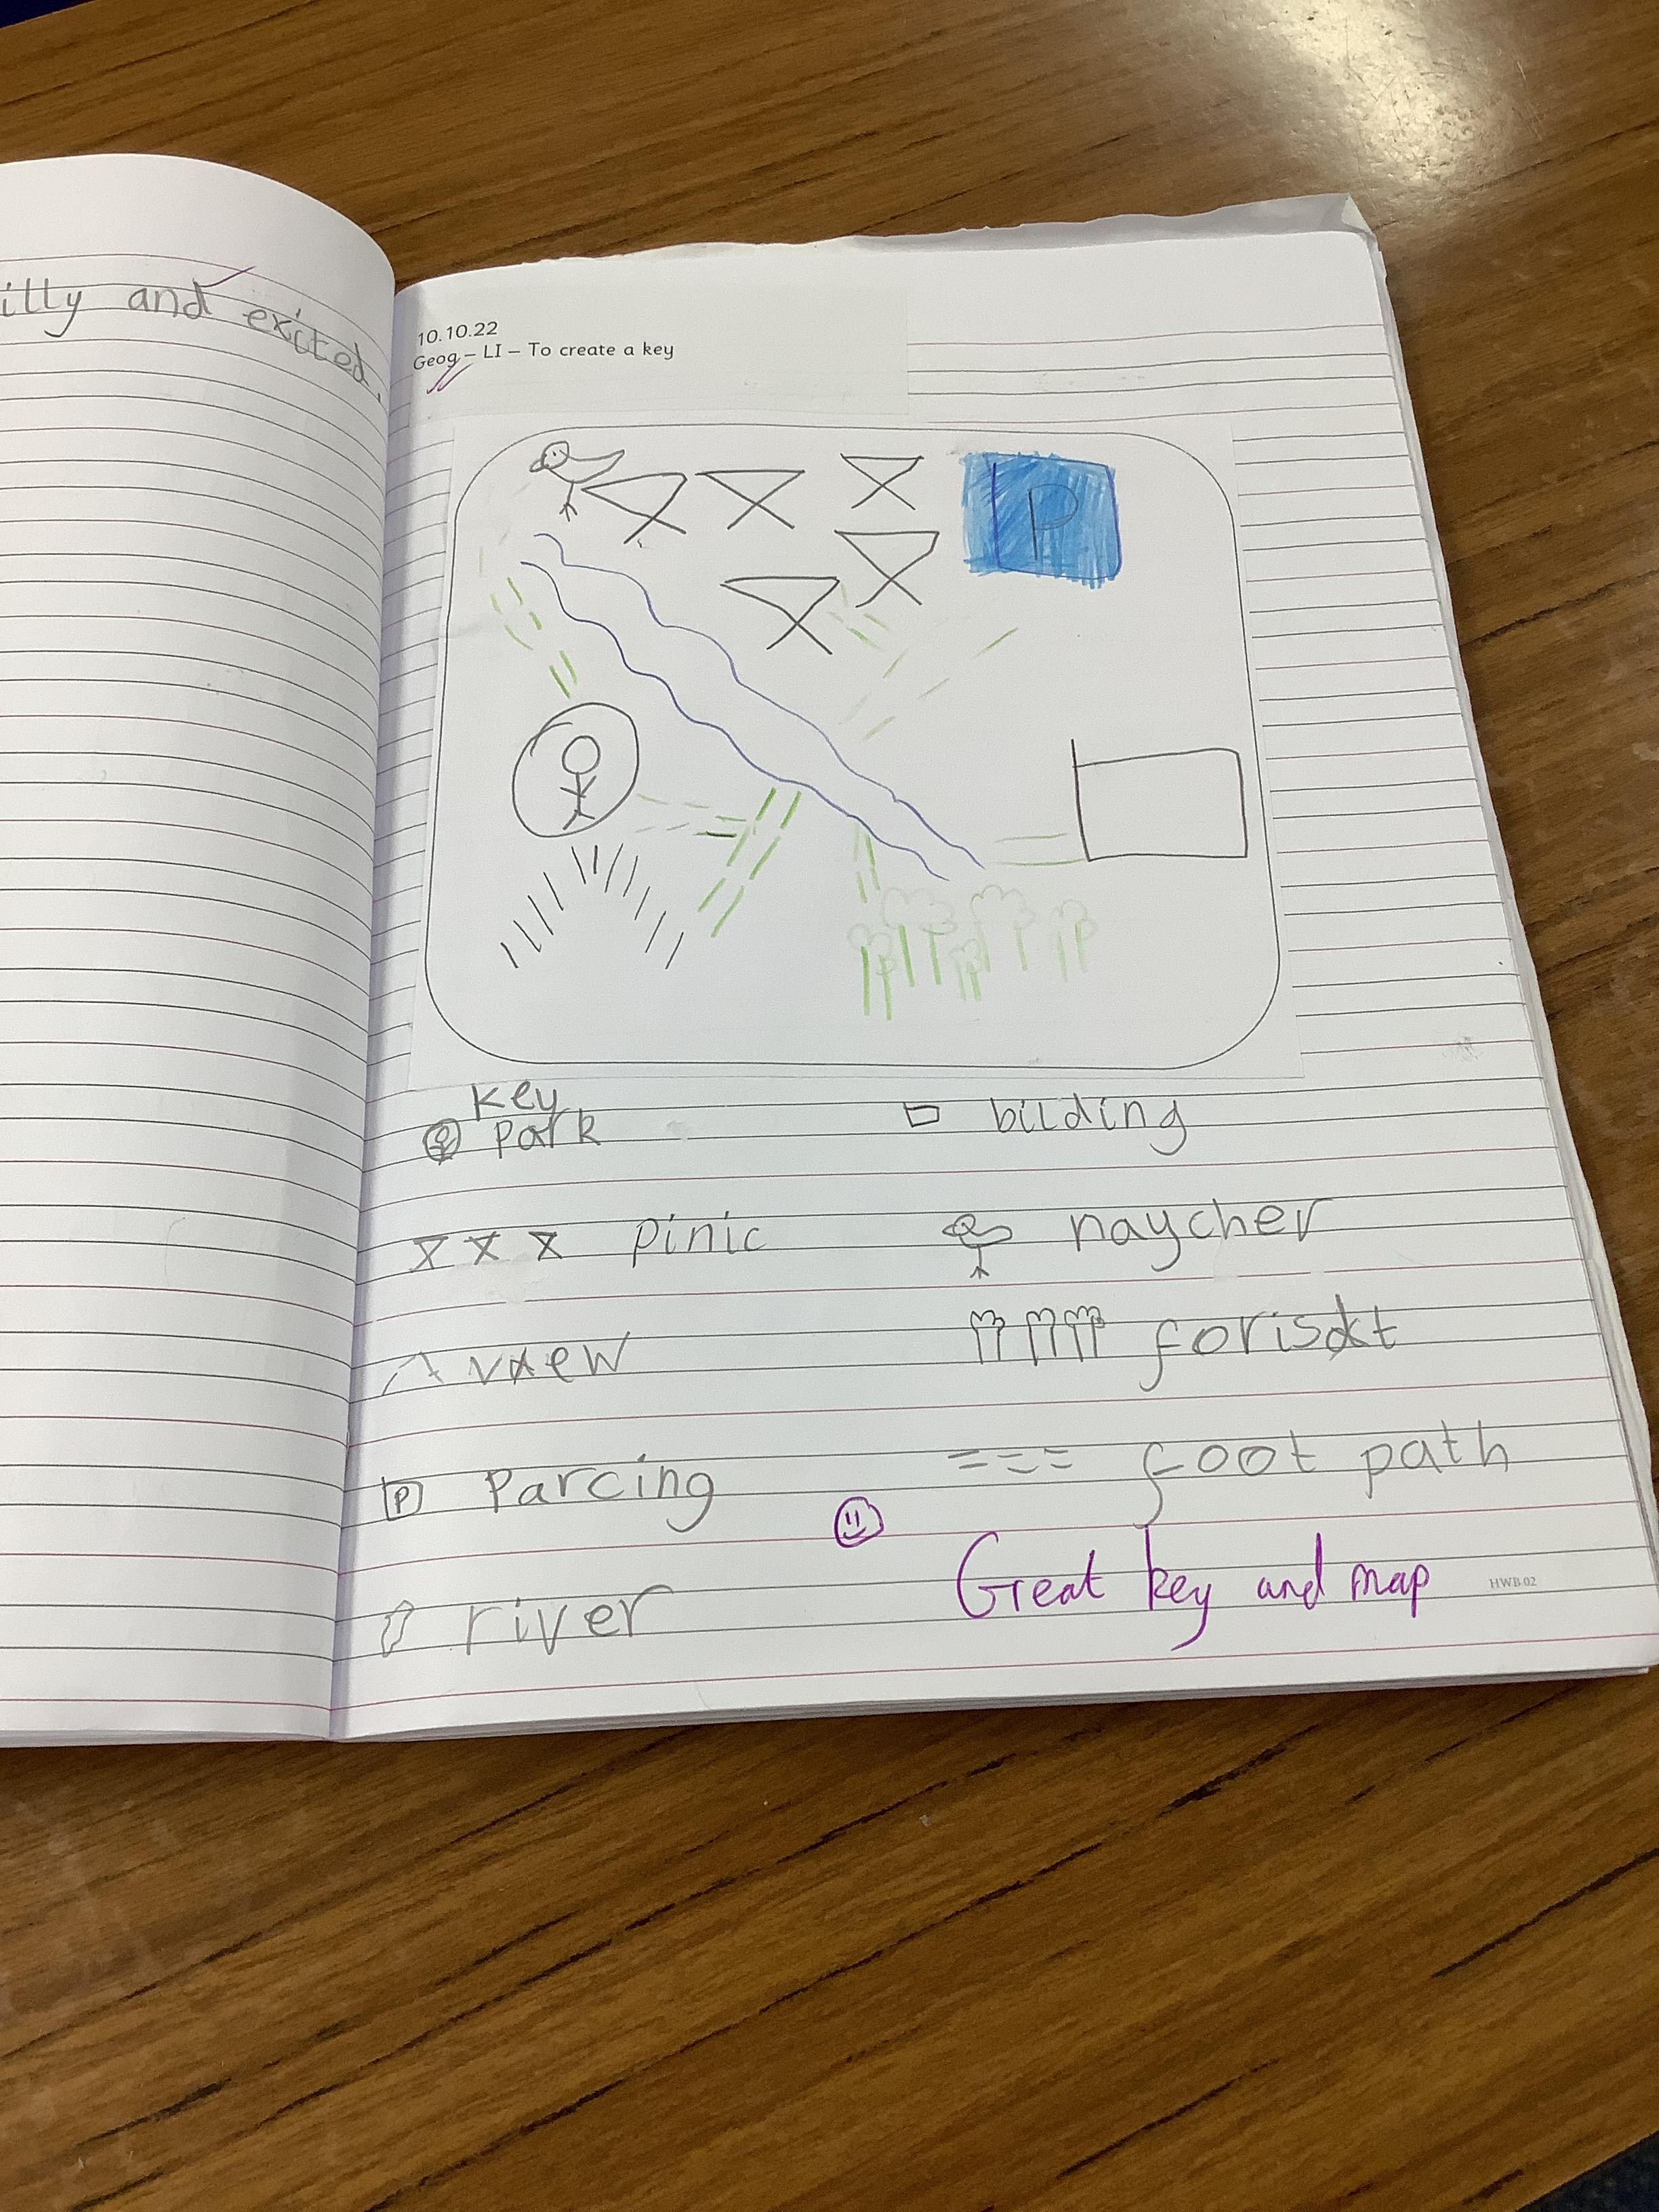 illy and exited
10.10.22
Geog – LI – To create a key
P
key
park
bilding
pinic
naycher
vaew
forisdt
P parcing
foot path
river
Great key and map
HWB02